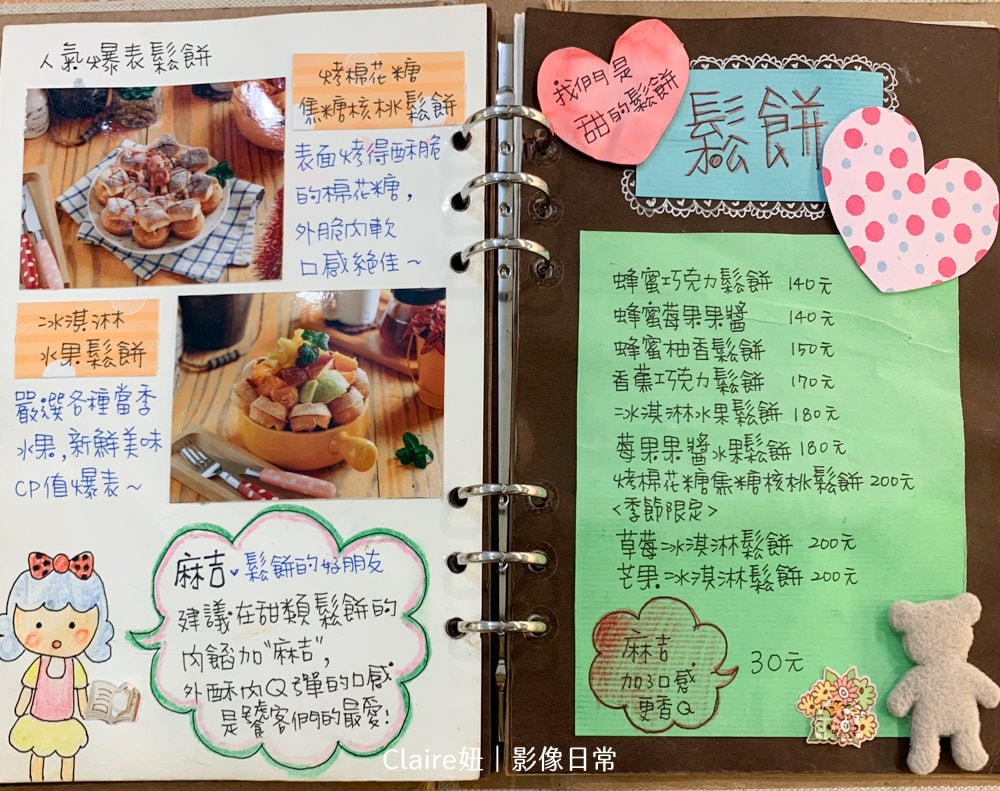 人氣爆表鬆餅
烤棉花糖
焦糖核桃鬆餅
表面烤得酥脆
的棉花糖，
外脆內軟
口感絕佳～
冰淇淋
水果鬆餅
嚴選各種當季
水果,新鮮美味
CP值爆表～
麻吉 鬆餅的好朋友
建議在甜類鬆餅的
內餡加"麻吉",
外酥內Q彈的口感
是饕客們的最愛!
我們是
甜的鬆餅
鬆餅
蜂蜜巧克力鬆餅 140元
蜂蜜莓果果醬 140元
蜂蜜柚香鬆餅 150元
香蕉巧克力鬆餅 170元
冰淇淋水果鬆餅 180元
莓果果醬水果鬆餅 180元
烤棉花糖焦糖核桃鬆餅 200元
<季節限定>
草莓冰淇淋鬆餅 200元
芒果冰淇淋鬆餅 200元
麻吉
加了口感
更香Q
30元
Claire妞｜影像日常